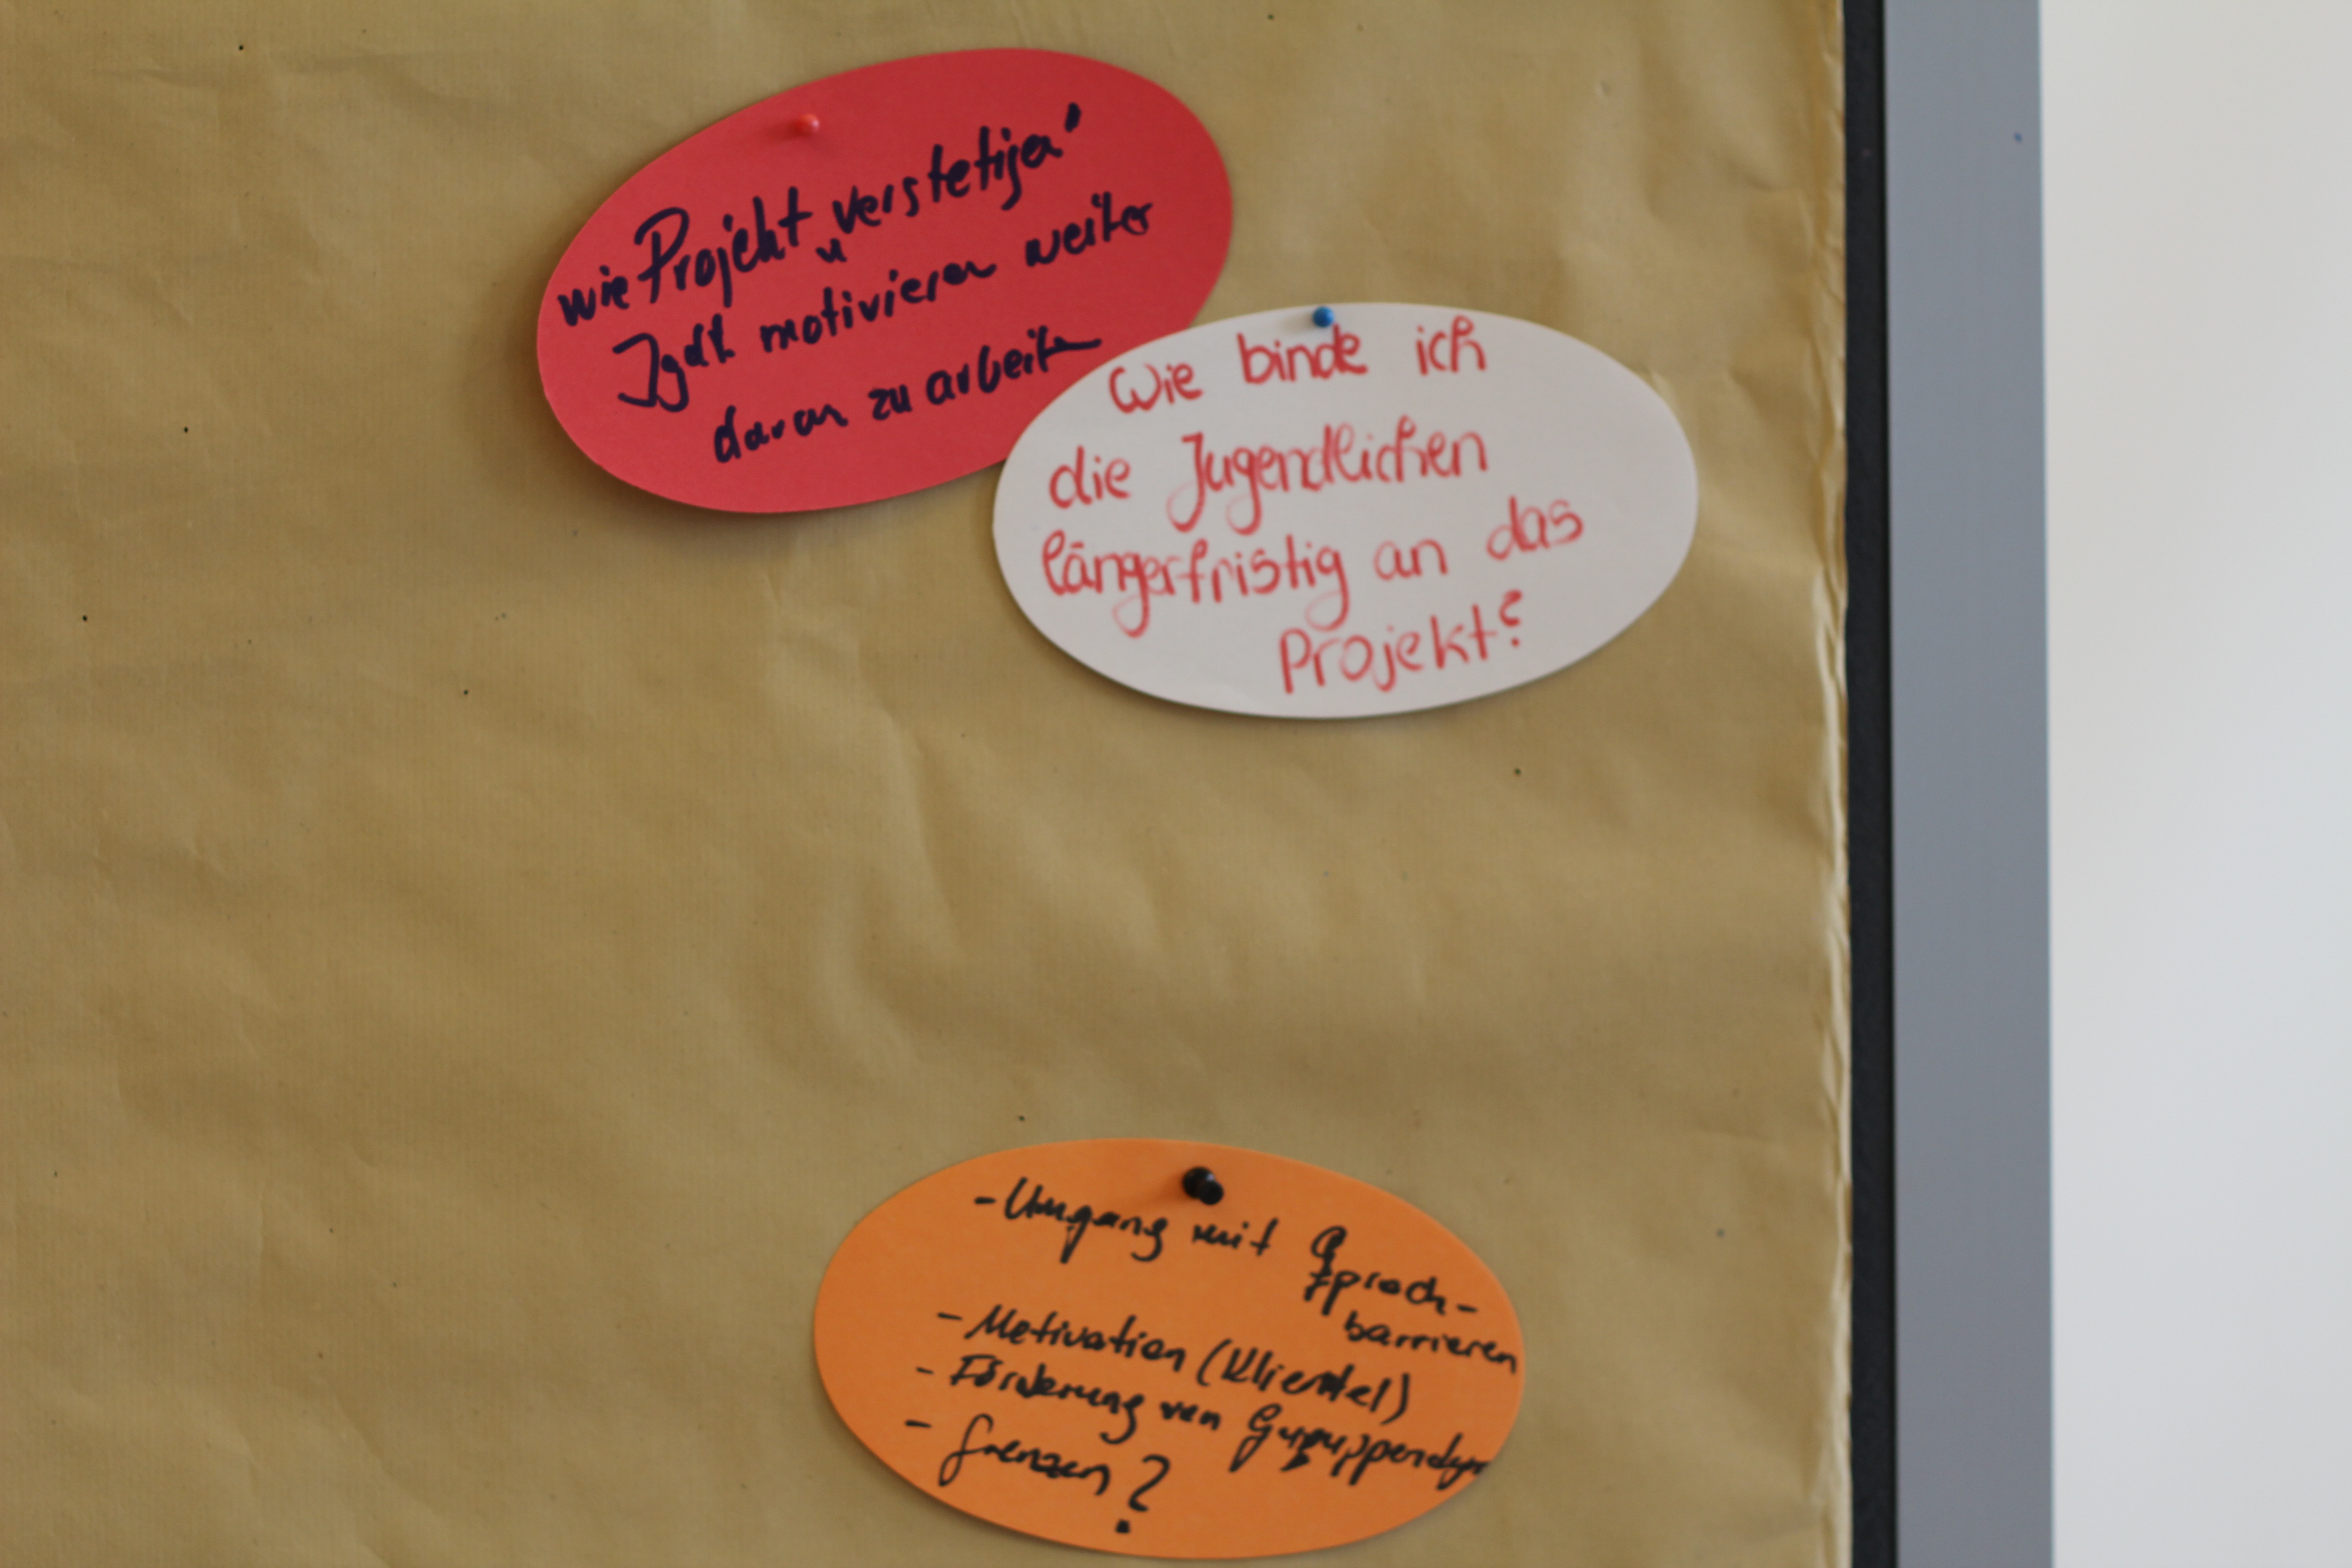 wie Projekt „verstetigen“
Jgdl. motivieren weiter
daran zu arbeiten
Wie binde ich
die Jugendlichen
längerfristig an das
Projekt?
- Umgang mit
Sprach-
barrieren
- Motivation (Klientel)
- Förderung von Gruppendyn
- Grenzen?